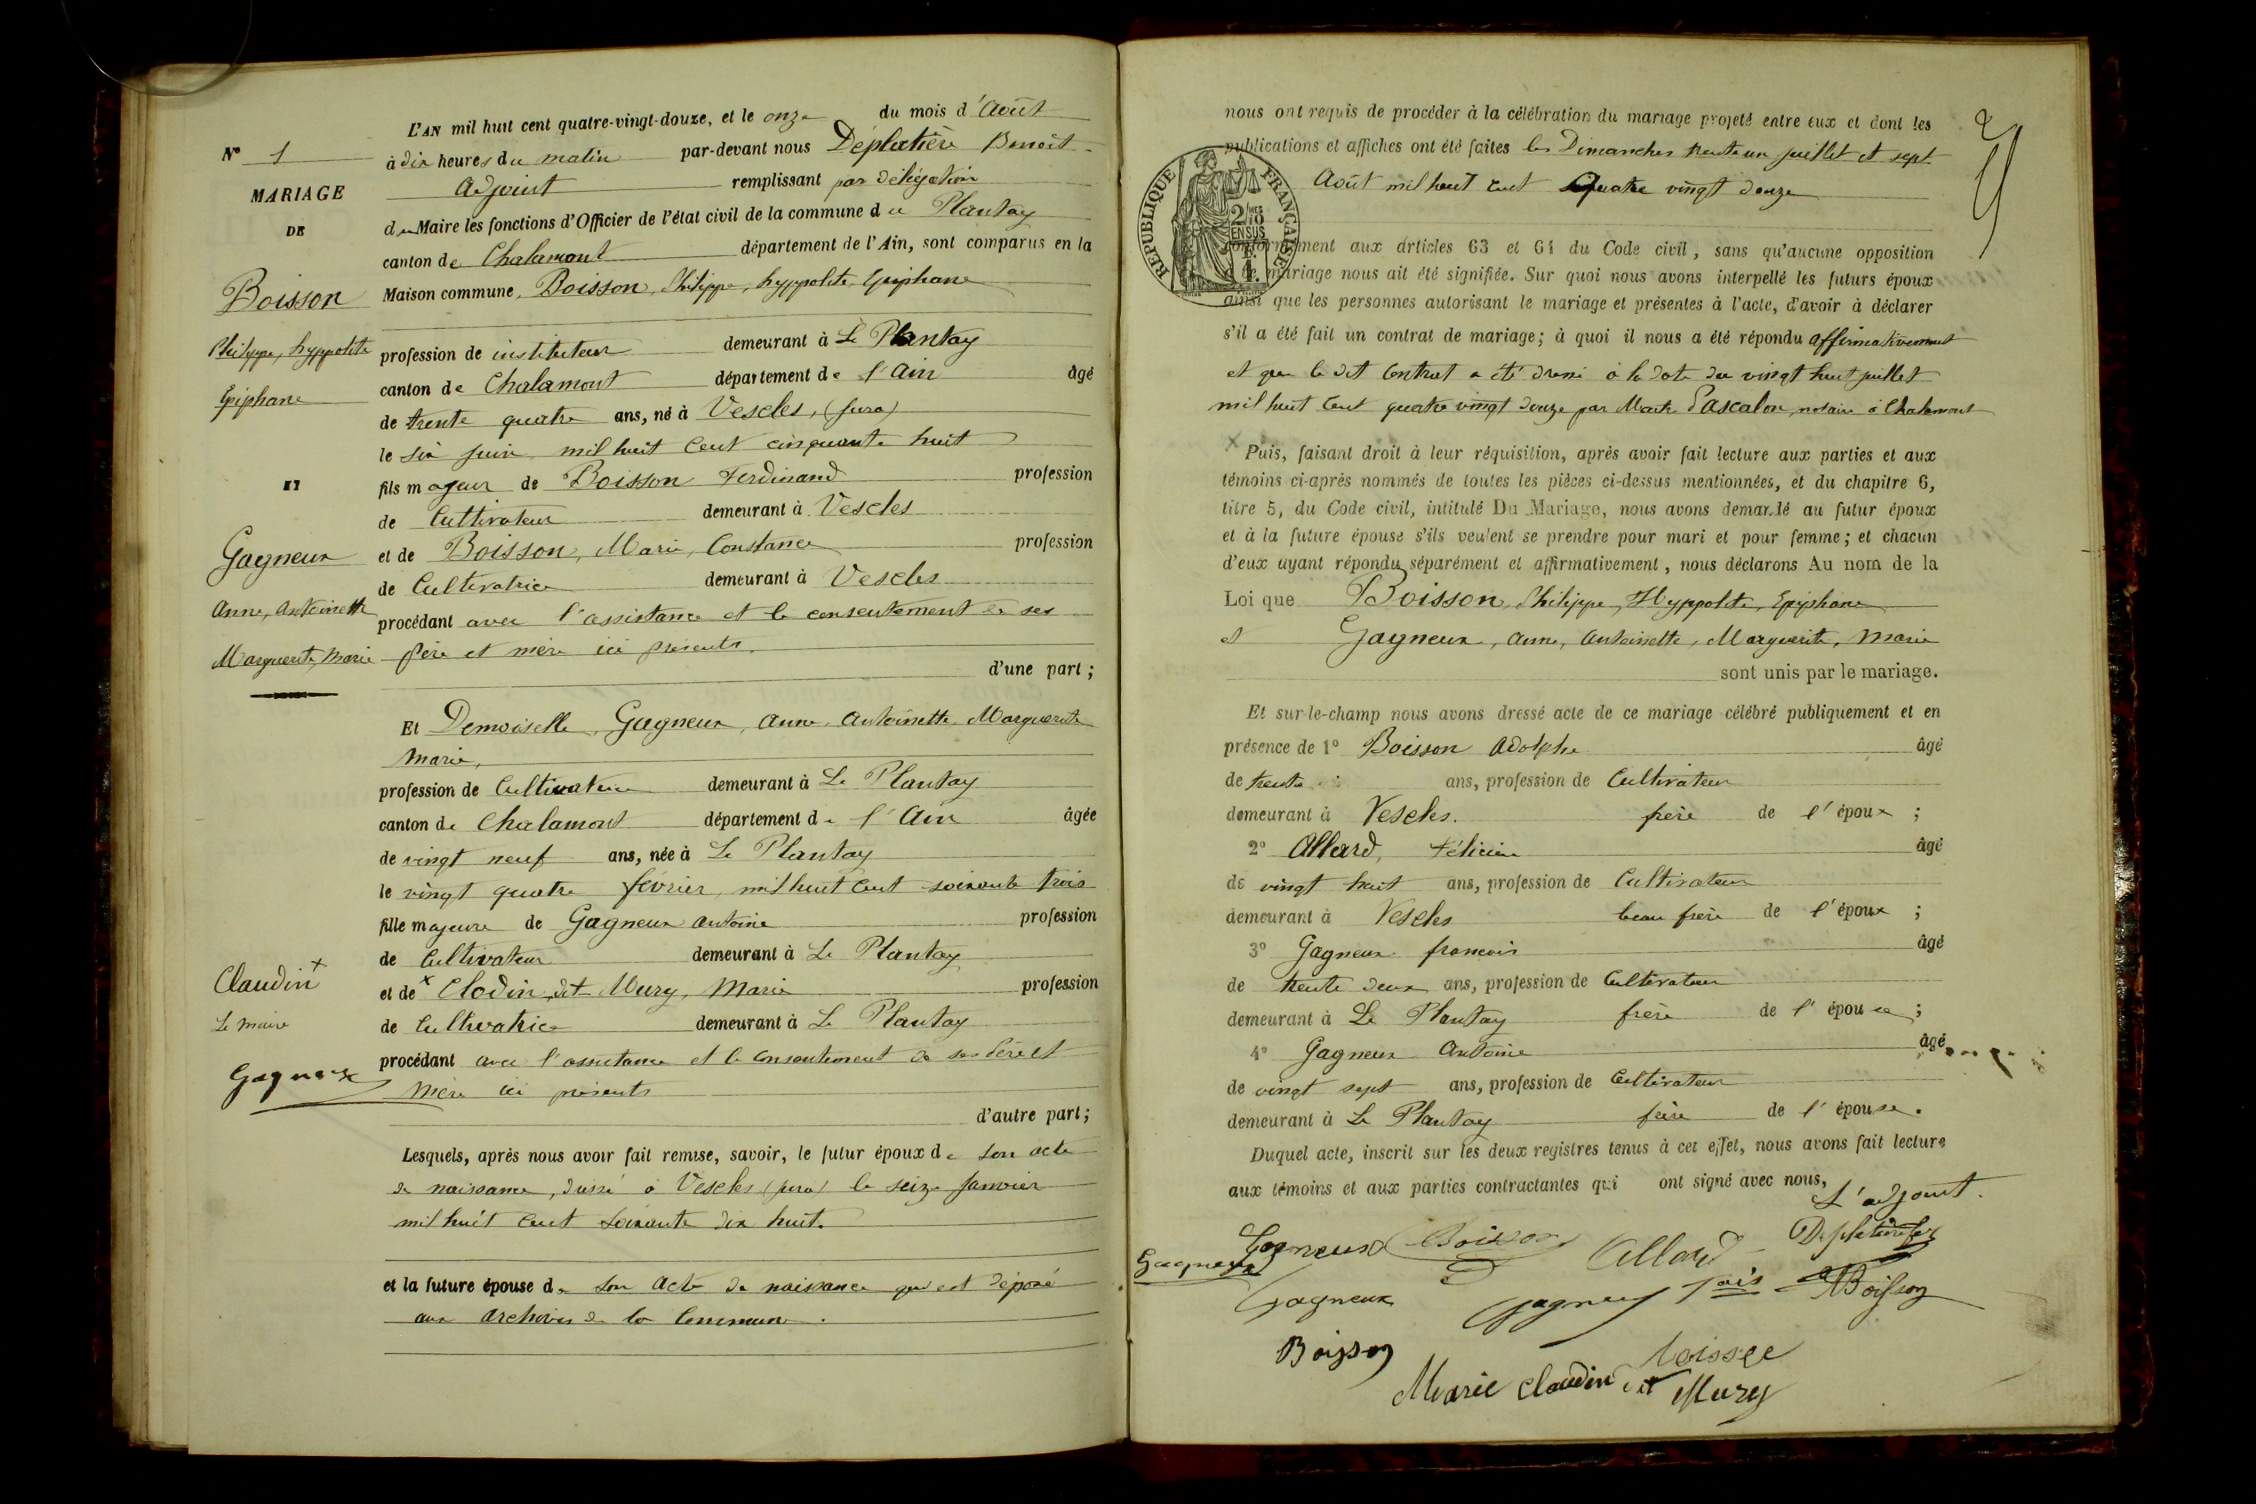 N° 1
MARIAGE
DE
Boisson
Philippe, hyppolite
Epiphane
ET
Gagneux
Anne, Antoinette
Marguerite, Marie
Claudin x
Le maire
Gagneux
L'AN mil huit cent quatre-vingt-douze, et le onze du mois d'Août
à dix heures du matin par-devant nous Déplatière Benoît
Adjoint remplissant par délégation
du Maire les fonctions d'Officier de l'état civil de la commune du Plantay
canton de Chalamont département de l'Ain, sont comparus en la
Maison commune, Boisson, Philippe, hyppolite, Epiphane
profession de instituteur demeurant à Le Plantay
canton de Chalamont département de l'Ain âgé
de trente quatre ans, né à Vescles, (jura)
le six juin mil huit cent cinquante huit
fils majeur de Boisson Ferdinand profession
de Cultivateur demeurant à Vescles
et de Boisson, Marie, Constance profession
de Cultivatrice demeurant à Vescles
procédant avec l'assistance et le consentement de ses
père et mère ici présents.
d'une part;
Et Demoiselle, Gagneux, Anne, Antoinette, Marguerite
Marie,
profession de Cultivatrice demeurant à Le Plantay
canton de Chalamont département de l'Ain âgée
de vingt neuf ans, née à Le Plantay
le vingt quatre février mil huit cent soixante trois
fille majeure de Gagneux antoine profession
de Cultivateur demeurant à Le Plantay
et de x Clodin dit Mury, Marie profession
de Cultivatrice demeurant à Le Plantay
procédant avec l'assistance et le consentement de ses Père et
Mère ici présents
d'autre part;
Lesquels, après nous avoir fait remise, savoir, le futur époux de son acte
de naissance, dressé à Vescles (jura) le seize Janvier
mil huit cent soixante dix huit.
et la future épouse de son acte de naissance qui est déposé
aux archives de la Commune.
nous ont requis de procéder à la célébration du mariage projeté entre eux et dont les
publications et affiches ont été faites les Dimanches trente un juillet et sept
Août mil huit cent Quatre vingt douze
conformément aux articles 63 et 64 du Code civil, sans qu'aucune opposition
mariage nous ait été signifiée. Sur quoi nous avons interpellé les futurs époux
ainsi que les personnes autorisant le mariage et présentes à l'acte, d'avoir à déclarer
s'il a été fait un contrat de mariage; à quoi il nous a été répondu affirmativement
et que le dit Contrat a été dressé à la date du vingt huit juillet
mil huit cent quatre vingt douze par Maître Pascalon, notaire à Chalamont
x Puis, faisant droit à leur réquisition, après avoir fait lecture aux parties et aux
témoins ci-après nommés de toutes les pièces ci-dessus mentionnées, et du chapitre 6,
titre 5, du Code civil, intitulé Du Mariage, nous avons demandé au futur époux
et à la future épouse s'ils veulent se prendre pour mari et pour femme; et chacun
d'eux ayant répondu séparément et affirmativement, nous déclarons Au nom de la
Loi que Boisson, Philippe, Hyppolite, Epiphane
et Gagneux, Anne, Antoinette, Marguerite, Marie
sont unis par le mariage.
Et sur-le-champ nous avons dressé acte de ce mariage célébré publiquement et en
présence de 1° Boisson Adolphe âgé
de trente ans, profession de Cultivateur
demeurant à Vescles. frère de l'époux;
2° Allard, Félicien âgé
de vingt huit ans, profession de Cultivateur
demeurant à Vescles beau frère de l'époux;
3° Gagneux françois âgé
de trente deux ans, profession de Cultivateur
demeurant à Le Plantay frère de l'épouse;
4° Gagneux Antoine âgé
de vingt sept ans, profession de Cultivateur
demeurant à Le Plantay frère de l'épouse.
Duquel acte, inscrit sur les deux registres tenus à cet effet, nous avons fait lecture
aux témoins et aux parties contractantes qui ont signé avec nous,
L'adjoint.
Gagneux Boisson Allard Deplatière
Gagneux
Gagneux Gagneux fois Boisson
Boisson
Marie Claudin dit Mury
RÉPUBLIQUE FRANÇAISE